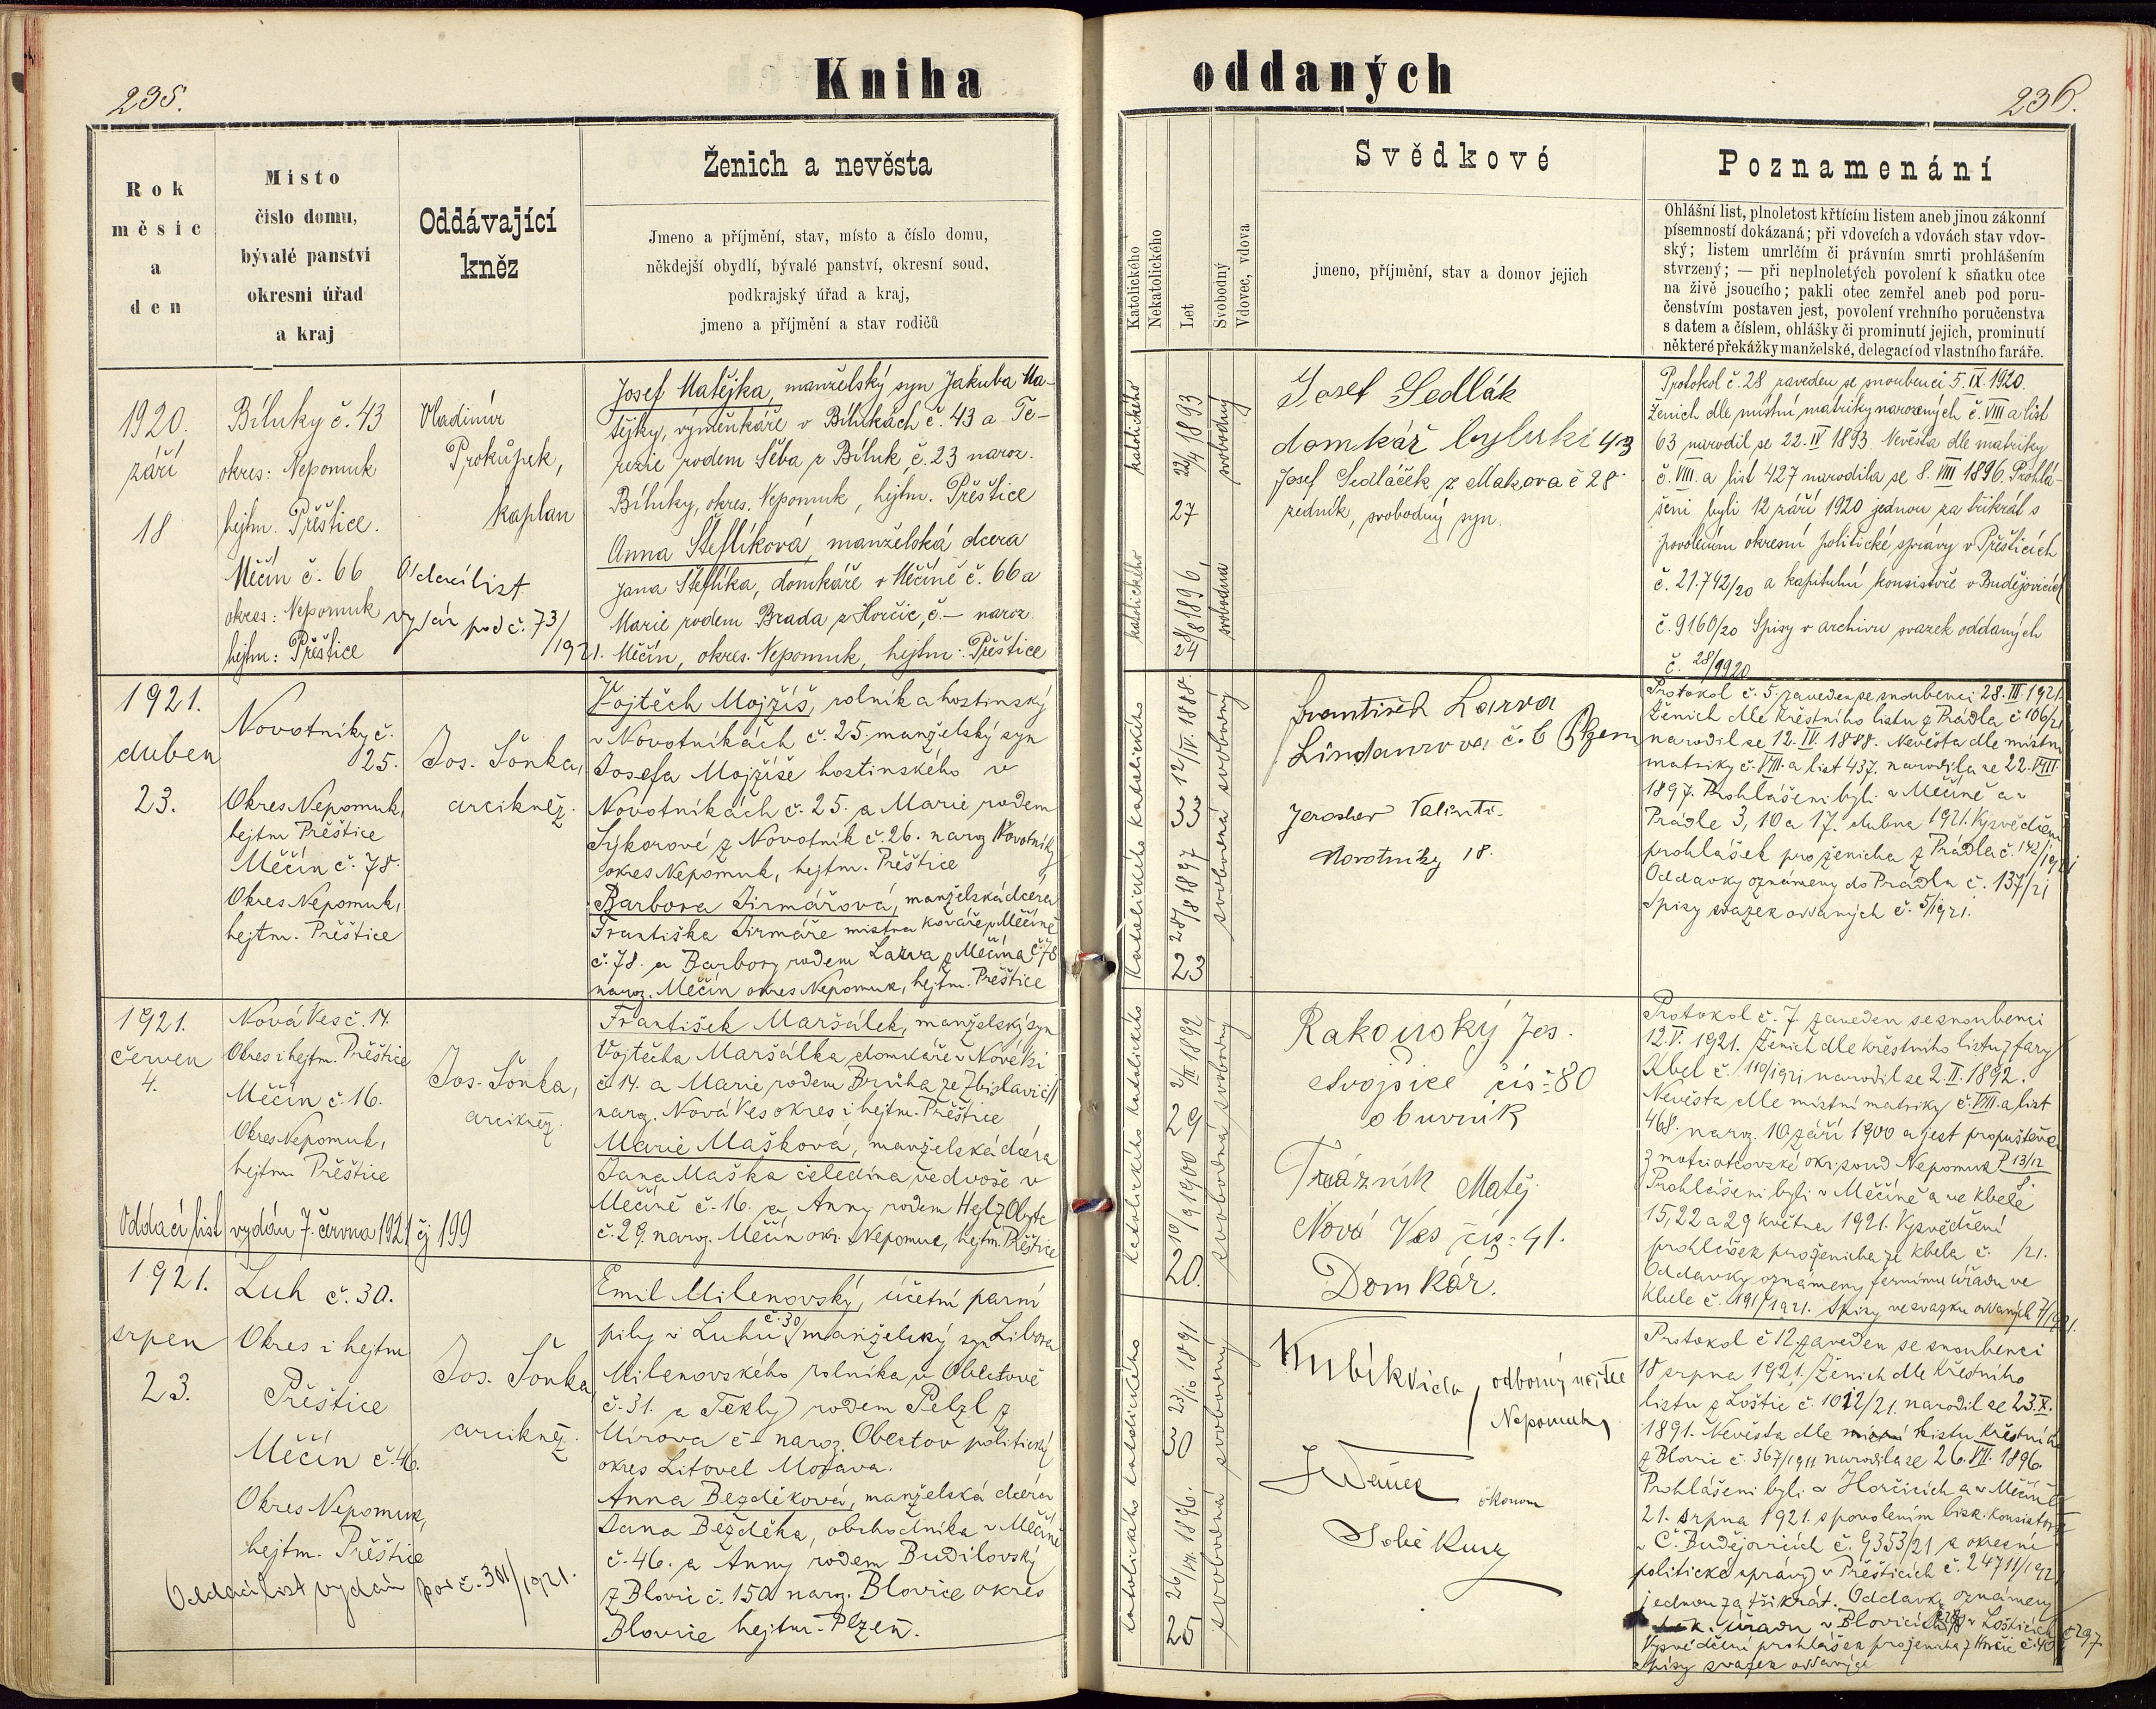 235.
Kniha
Rok
měsíc
a
den
Místo
číslo domu,
bývalé panství
okresní úřad
a kraj
Oddávající
kněz
Ženich a nevěsta
Jmeno a příjmění, stav, místo a číslo domu,
někdejší obydlí, bývalé panství, okresní soud,
podkrajský úřad a kraj,
jmeno a příjmění a stav rodičů
1920.
září
18
Bíluky č. 43
okres: Nepomuk
hejtm. Přeštice.
Měčín č. 66
okres: Nepomuk
hejtm: Přeštice
Vladimír
Prokůpek,
kaplan
Oddací list
vydán pod č. 73/
/1921.
Josef Matějka, manželský syn Jakuba Ma-
tějky, výměnkáře v Bílukách č. 43 a Te-
rezie rodem Šeba z Bíluk č. 23 naroz.
Bíluky, okres. Nepomuk, hejtm. Přeštice
Anna Šteflíková, manželská dcera
Jana Šteflíka, domkáře v Měčíně č. 66 a
Marie rodem Brada z Horčic, č — naroz
Měčín, okres. Nepomuk, hejtm: Přeštice
1921.
duben
23.
Novotníky č.
25.
Okres Nepomuk,
hejtm Přeštice
Měčín č. 78.
Okres Nepomuk,
hejtm. Přeštice
Jos. Šonka,
arcikněz.
Vojtěch Mojžíš, rolník a hostinský
v Novotníkách č. 25, manželský syn
Josefa Mojžíše hostinského v
Novotníkách č. 25. a Marie rodem
Sýkorové z Novotník č. 26. naroz Novotníky
okres Nepomuk, hejtm. Přeštice
Barbora Jirmářová, manželská dcera
Františka Jirmáře mistra kováře v Měčíně
č. 78. a Barbory rodem Larva z Měčína č. 78
naroz. Měčín okres Nepomuk, hejtm. Přeštice
1921.
červen
4.
Nová Ves č. 14.
Okres i hejtm. Přeštice
Měčín č. 16.
Okres Nepomuk,
hejtm Přeštice
Jos. Šonka,
arcikněz.
František Maršálek, manželský syn
Vojtěcha Maršálka domkáře v Nové Vsi
č. 14. a Marie rodem Brůha ze Zbislavic č.
naroz. Nová Ves okres i hejtm. Přeštice
Marie Mašková, manželská dcera
Jana Maška čeledína ve dvoře v
Měčíně č. 16. a Anny rodem Hejl z Obytc
č. 29. naroz. Měčín okr. Nepomuk, hejtm. Přeštice
Oddací list vydán 7. června 1921 čj 199
1921.
srpen
23.
Luh č. 30.
Okres i hejtm
Přeštice
Měčín č. 46.
Okres Nepomuk,
hejtm. Přeštice
Oddací list vydán pod č. 301/1921.
Jos. Šonka
arcikněz.
Emil Milenovský, účetní parní
pily v Luhu č. 30 manželský syn Libora
Milenovského rolníka v Obectově
č. 31. a Tekly rodem Pelzl z
Mírova č – naroz. Obectov politický
okres Litovel Morava.
Anna Bezděková, manželská dcera
Jana Bezděka, obchodníka v Měčíně
č. 46. a Anny rodem Budilovský
z Blovic č. 150 naroz. Blovice okres
Blovice hejtm. Plzeň.
oddaných
236.
Katolického
Nekatolického
Let
Svobodný
Vdovec, vdova
Svědkové
jmeno, příjmění, stav a domov jejich
Poznamenání
Ohlášní list, plnoletost křtícím listem aneb jinou zákonní
písemností dokázaná; při vdovcích a vdovách stav vdov-
ský; listem umrlčím či právním smrti prohlášením
stvrzený; — při neplnoletých povolení k sňatku otce
na živě jsoucího; pakli otec zemřel aneb pod poru-
čenstvím postaven jest, povolení vrchního poručenstva
s datem a číslem, ohlášky či prominutí jejich, prominutí
některé překážky manželské, delegací od vlastního faráře.
katolického
22/4 1893
27
svobodný
katolického
8/8 1896
24
svobodná
Josef Sedlák
domkář byluki 43
Josef Sedláček z Makova č 28
zedník, svobodný syn.
Protokol č. 28 zaveden se snoubenci 5. IX. 1920.
Ženich dle místní matriky narozených č. VIII a list
63 narodil se 22. IV 1893 Nevěsta dle matriky
č. VIII. a list 427 narodila se 8. VIII 1896. Prohlá-
šeni byli 12 září 1920 jednou za třikrát s
povolením okresní politické správy v Přešticích
č. 21.742/20 a kapitulní konsistoře v Budějovicích
č. 9160/20 Spisy v archivu svazek oddaných
č. 28/1920
katolického
12/IV. 1888.
33
svobodný
katolického
28/8 1897
23
svobodná
František Larva
Lindaurova č. 6 Plzeň
Jaroslav Valenta.
Novotníky 18.
Protokol č. 5 zaveden se snoubenci 28. III. 1921.
Ženich dle křestního listu z Prádla č 106/21
narodil se 12. IV. 1888. Nevěsta dle místní
matriky č. VIII. a list 437. narodila se 22. VIII
1897. Prohlášeni byli v Měčíně a v
Prádle 3, 10 a 17. dubna 1921. Vysvědčení
prohlášek pro ženicha z Prádla č. 142/1921
Oddavky oznámeny do Prádla č. 137/21
Spisy svazek oddaných č. 5/1921.
katolického
2/II 1892
29
svobodný
katolického
10/9 1900
20.
svobodná
Rakouský Jos.
Svojšice čís: 80
obuvník
Trázník Matěj
Nová Ves čís: 41.
Domkář.
Protokol č. 7 zaveden se snoubenci
12. V. 1921. Ženich dle křestního listu z fary
Kbel č. 110/1921 narodil se 2. II. 1892.
Nevěsta dle místní matriky č. VIII. a list
468. naroz. 10 září 1900 a jest propuštěna
z moci otcovské okr. soud Nepomuk P 13/12
Prohlášeni byli v Měčíně a ve Kbele
15, 22 a 29 května 1921. Vysvědčení
prohlášek pro ženicha ze Kbela č. /21.
Oddavky oznámeny farnímu úřadu ve
Kbele č. 191/1921. Spisy ve svazku oddaných 7/1921.
katolického
23/10 1891
30
svobodný
katolického
26/VII. 1896.
25
svobodná
Kubík Vida, odborný učitel
Nepomuk,
ekonom
Protokol č 12 zaveden se snoubenci
18 srpna 1921. Ženich dle křestního
listu z Loštic č. 1012/21. narodil se 23. X.
1891. Nevěsta dle listu křestního
z Blovic č. 367/1911 narodila se 26. VII. 1896.
Prohlášeni byli v Horčicích a v Měčíně
21. srpna 1921. s povolením bisk. konsistoře
v Č. Budějovicích č. 9353/21 a okresní
politické správy v Přešticích č. 24711/1921
jednou za třikrát. Oddavky oznámeny
úřadu v Blovicích v Lošticích č 297
Vysvědčení prohlášek pro ženicha z Horčic č. 40
Spisy svazek oddaných